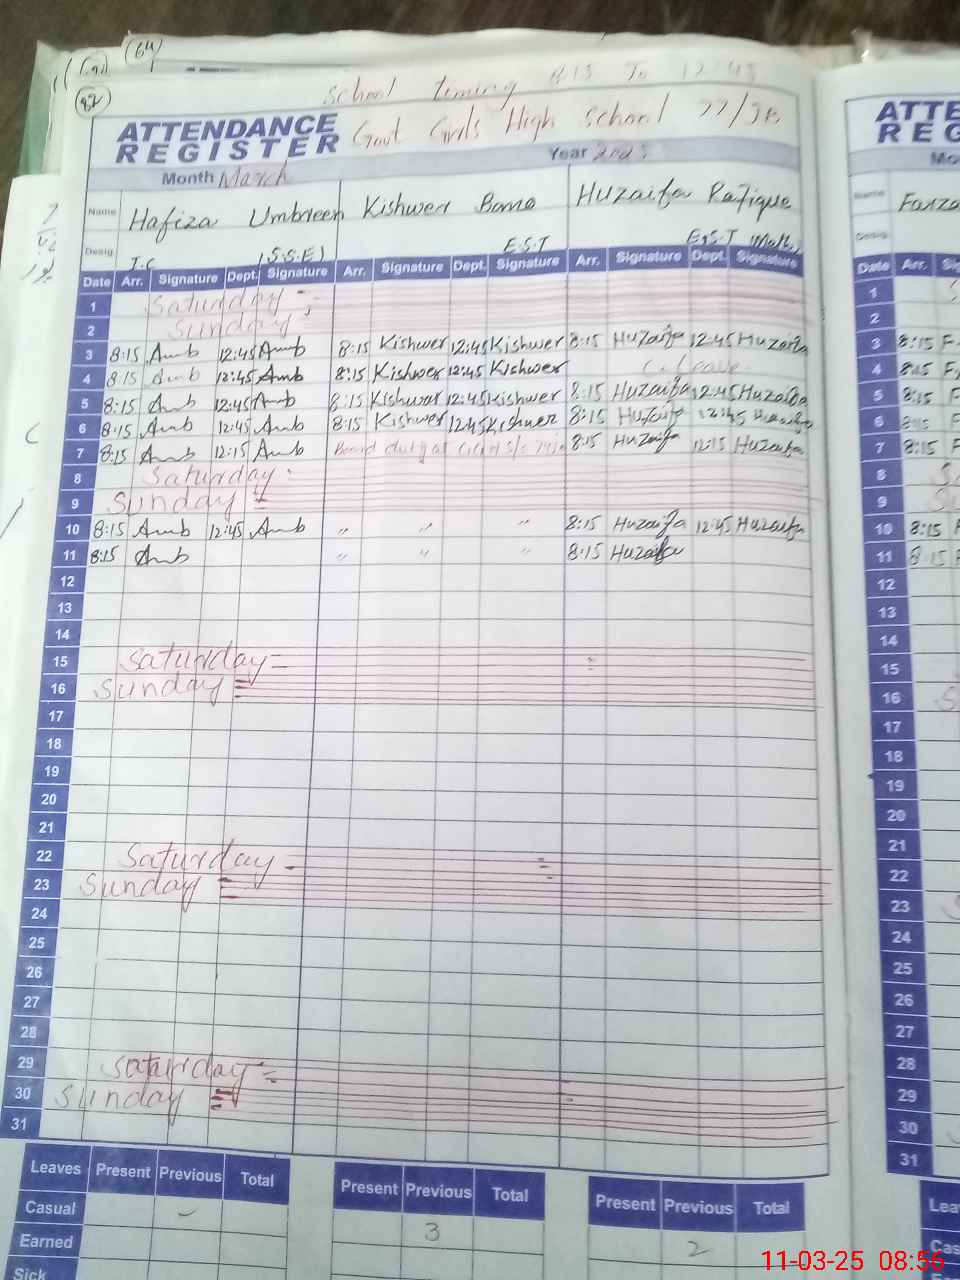 (64)
82
School timing 8:15 To 12:45
ATTENDANCE REGISTER Govt Girls High School 77/JB
Month March Year 2025
Name Hafiza Umbreen Kishwer Bano Huzaifa Rafique
Desig. I.C (S.S.E) E.S.T E.S.T (Math)
Date Arr. Signature Dept. Signature Arr. Signature Dept. Signature Arr. Signature Dept. Signature
1 Saturday
2 Sunday
3 8:15 Amb 12:45 Amb 8:15 Kishwer 12:45 Kishwer 8:15 Huzaifa 12:45 Huzaifa
4 8:15 Amb 12:45 Amb 8:15 Kishwer 12:45 Kishwer C. Leave
5 8:15 Amb 12:45 Amb 8:15 Kishwer 12:45 Kishwer 8:15 Huzaifa 12:45 Huzaifa
6 8:15 Amb 12:45 Amb 8:15 Kishwer 12:45 Kishwer 8:15 Huzaifa 12:45 Huzaifa
7 8:15 Amb 12:15 Amb Board duty at 8:15 Huzaifa 12:15 Huzaifa
8 Saturday
9 Sunday
10 8:15 Amb 12:45 Amb " " " 8:15 Huzaifa 12:45 Huzaifa
11 8:15 Amb " " " 8:15 Huzaifa
12
13
14
15 Saturday
16 Sunday
17
18
19
20
21
22 Saturday
23 Sunday
24
25
26
27
28
29 Saturday
30 Sunday
31
Leaves Present Previous Total Present Previous Total Present Previous Total
Casual - 3 2
Earned
Sick
ATTE
REG
Mo
Name Farza
Desig.
Date Arr. Si
1 S
2
3 8:15 F
4 8:15 F
5 8:15 F
6 8:15 F
7 8:15 F
8 S
9 S
10 8:15
11 8:15
12
13
14
15
16 S
17
18
19
20
21
22
23
24
25
26
27
28
29
30
31
Lea
Cas
11-03-25 08:56